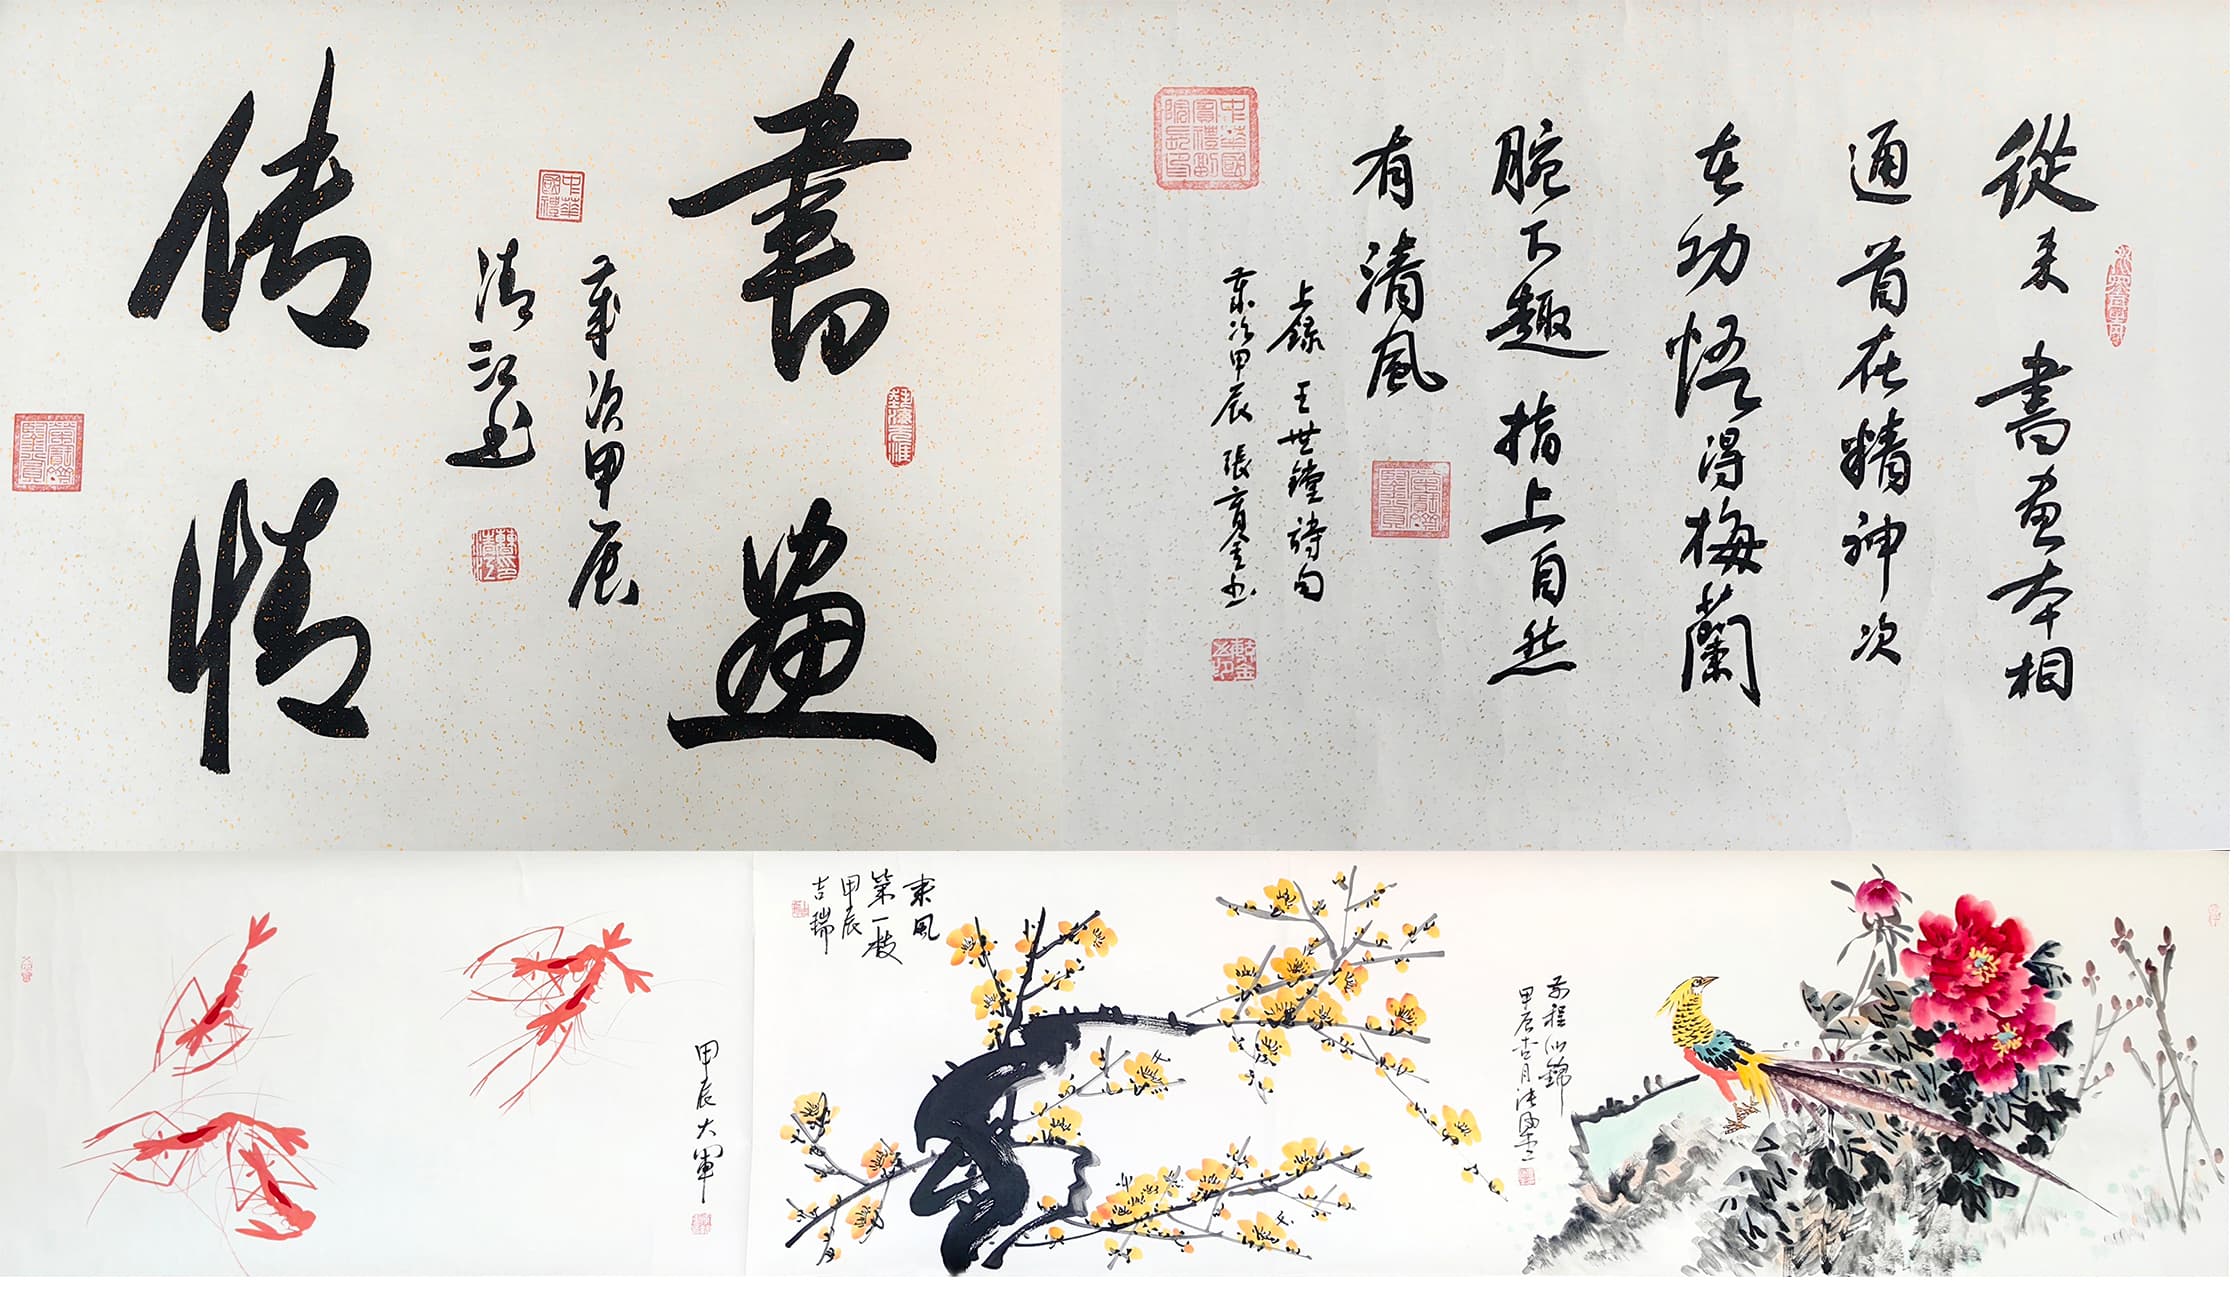 從來書画本相
通首在精神次
在功悟得梅蘭
腕下趣指上自然
有清風
上録王世鏜詩句
歲次甲辰張育金书
書畫
歲次甲辰
清江书
传情
中華國禮
前程似錦
甲辰吉月
東風
第一枝
甲辰
吉瑞
甲辰大軍